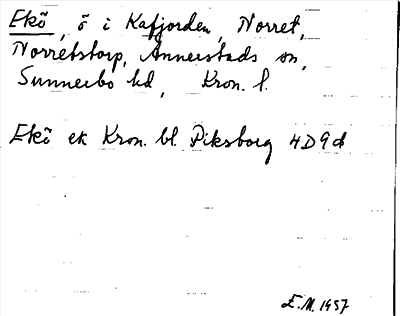 Ekö, ö i Kafjorden, Norret,
Norretstorp, Annerstads sn,
Sunnerbo hd, Kron. l.
Ekö ek Kron. bl. Piksborg 4D9d
E.M. 1957